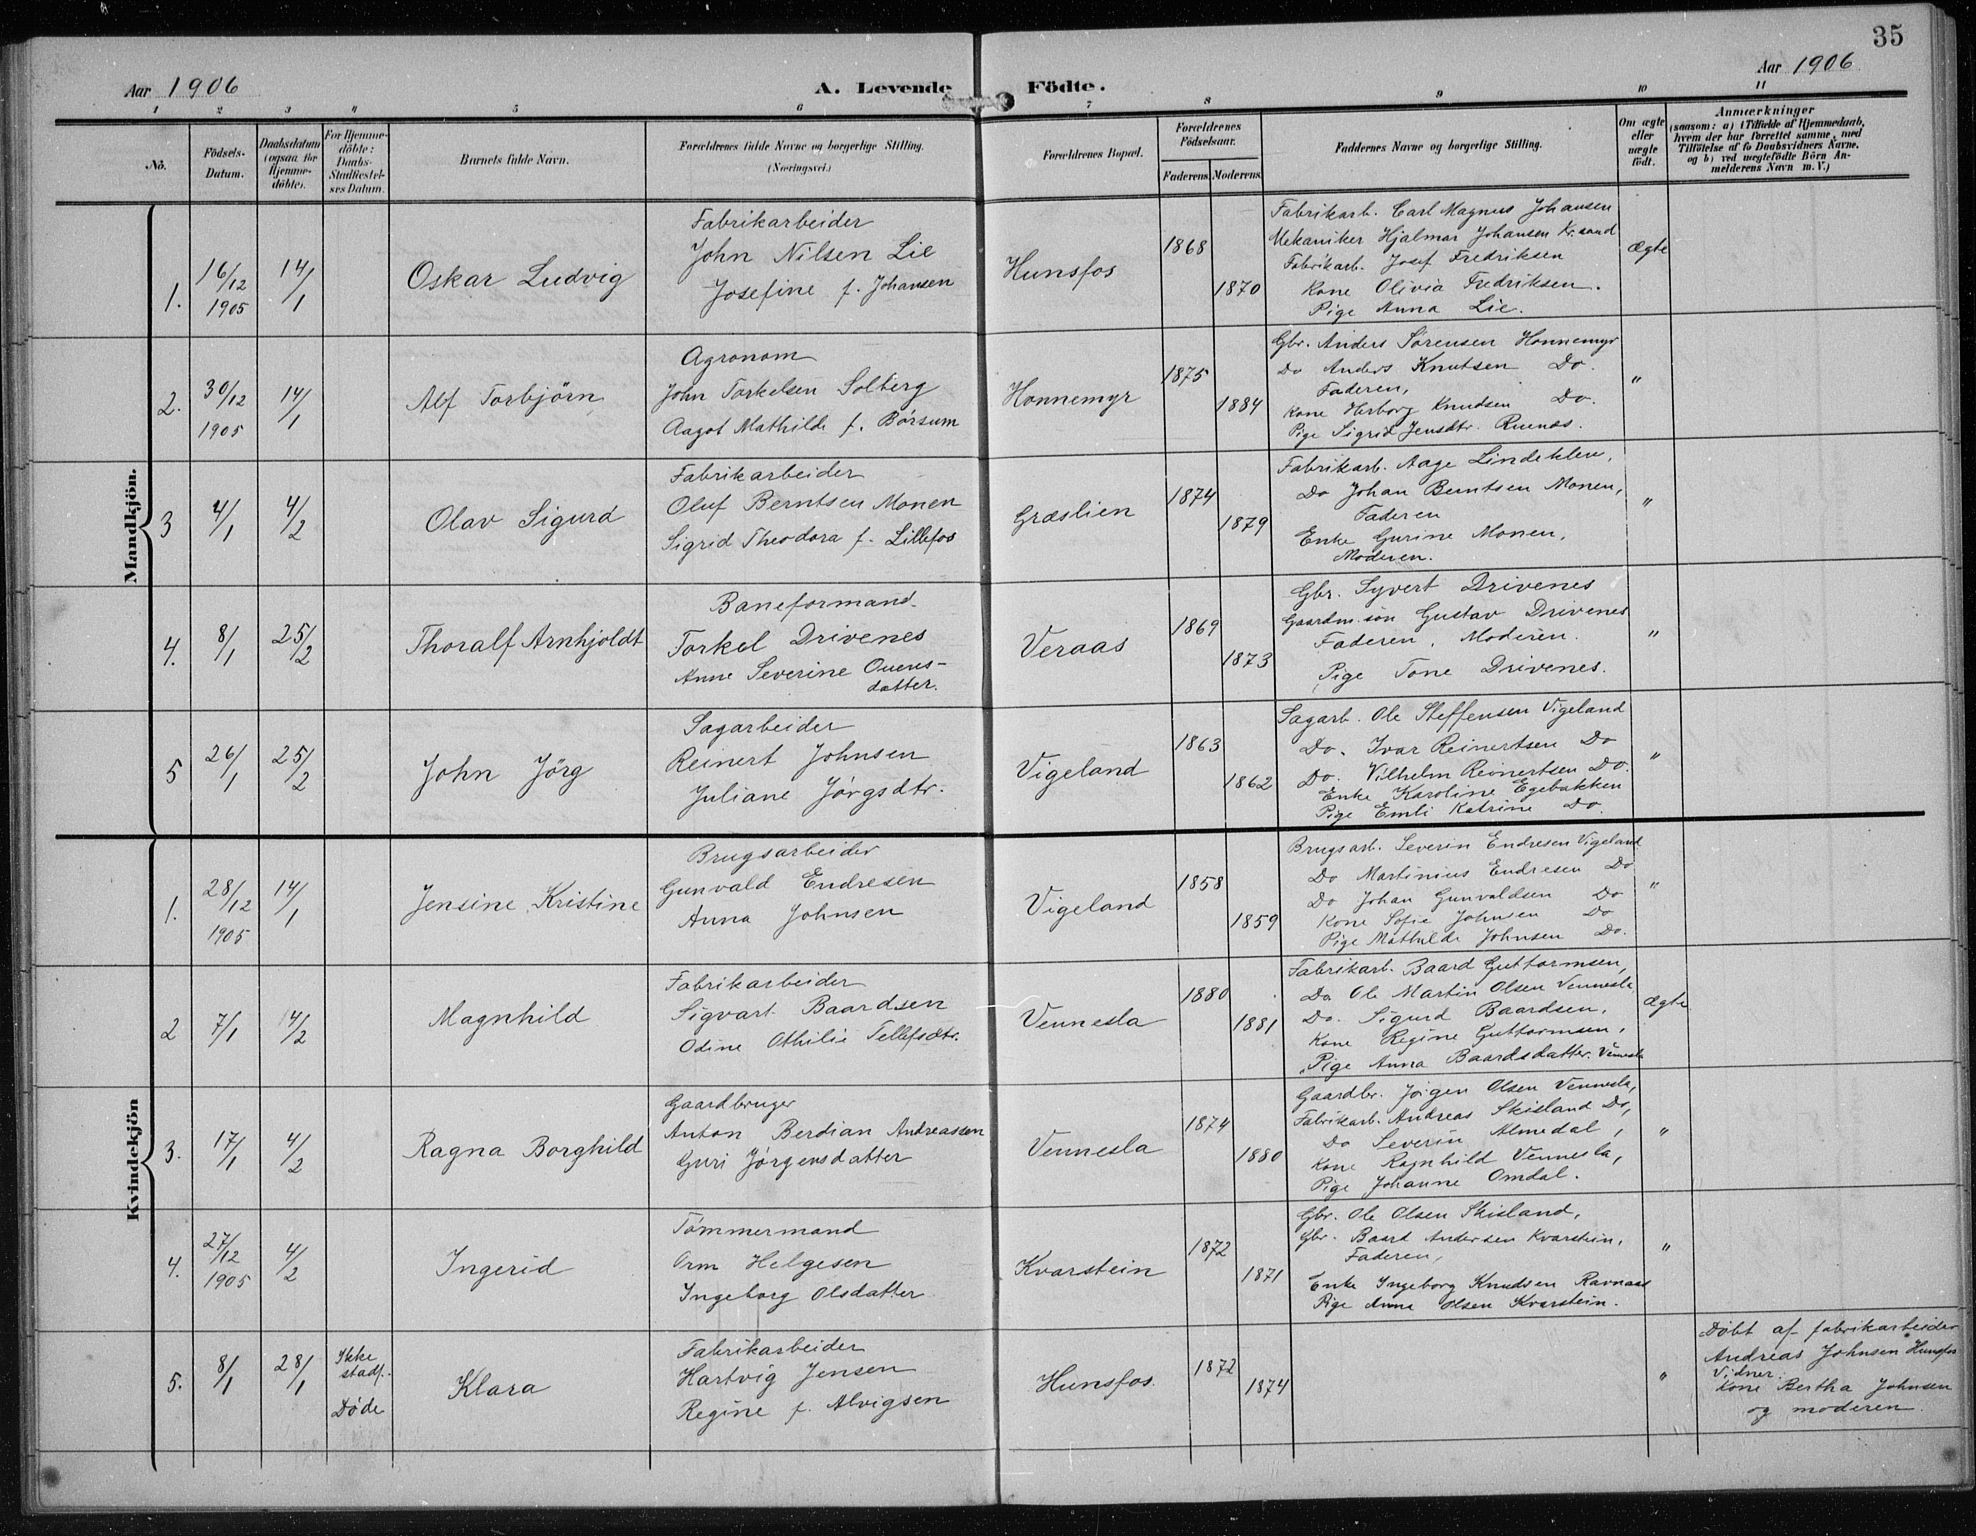 35
Aar 1906
A. Levende Födte.
Aar 1906
1 2 3 4 5 6 7 8 9 10 11
No.
Födsels-Datum.
Daabsdatum (ogsaa for Hjemme-döbte).
For Hjemme-döbte: Daabs-Stadfæstel-ses Datum.
Barnets fulde Navn.
Forældrenes fulde Navne og borgerlige Stilling.
(Næringsvei.)
Forældrenes Bopæl.
Forældrenes Födselsaar.
Faderens. Moderens.
Faddernes Navne og borgerlige Stilling.
Om ægte eller uægte födt.
Anmærkninger
(saasom: a) i Tilfælde af Hjemmedaab, hvem der har forrettet samme, med Tilföielse af to Daabsvidners Navne, og b) ved uægtefödte Börn Anmelderens Navn m. V.)
Mandkjön.
1. 16/12 1905 14/1
Oskar Ludvig
Fabrikarbeider
John Nilsen Lie
Josefine f. Johansen
Hunsfos
1868
1870
Fabrikarb. Carl Magnus Johansen
Mekaniker Hjalmar Johansen Kr.sand
Fabrikarb. Josef Fredriksen
Kone Olivia Fredriksen.
Pige Anna Lie.
ægte
2. 30/12 1905 14/1
Alf Torbjörn
Agronom
John Torkelsen Solberg
Aagot Mathilde f. Børsum
Honnemyr
1875
1884
Gbr. Anders Sørensen Honnemyr
Do Anders Knutsen Do.
Faderen,
Kone Herborg Knudsen Do.
Pige Sigrid Jensdtr. Ruenes.
"
3 4/1 4/2
Olav Sigurd
Fabrikarbeider
Oluf Berntsen Monen
Sigrid Theodora f. Lillefos
Græslien
1874
1879
Fabrikarb. Aage Lindekleu,
Do Johan Berntsen Monen,
Faderen
Enke Gurine Monen,
Moderen.
"
4. 8/1 25/2
Thoralf Arnhjoldt
Baneformand.
Torkel Drivenes
Anne Severine Ouens-
datter.
Veraas
1869
1873
Gbr. Syvert Drivenes
Gaardm.søn Gustav Drivenes
Faderen, Moderen.
Pige Tone Drivenes.
"
5 26/1 25/2
John Jörg
Sagarbeider
Reinert Johnsen
Juliane Jørgsdtr.
Vigeland
1863
1862
Sagarb. Ole Steffensen Vigeland
Do. Ivar Reinertsen Do
Do. Vilhelm Reinertsen Do.
Enke Karoline Egebakken
Pige Emli Katrine Do.
"
Kvindekjön
1. 28/12 1905 14/1
Jensine Kristine
Brugsarbeider
Gunvald Endresen
Anna Johnsen
Vigeland
1858
1859
Brugsarb. Severin Endresen Vigeland
Do Martinius Endresen Do
Do Johan Gunvaldsen Do
Kone Sofie Johnsen Do
Pige Mathilde Johnsen Do.
"
2 7/1 14/2
Magnhild
Fabrikarbeider
Sigvart Baardsen
Odine Othilie Tellefsdtr.
Vennesla
1880
1881
Fabrikarb. Baard Guttormsen,
Do Ole Martin Olsen Vennesla
Do. Sigurd Baardsen,
Kone Regine Guttormsen,
Pige Anna Baardsdatter. Vennesla
ægte
3. 17/1 4/2
Ragna Borghild
Gaardbruger
Anton Berdian Andreassen
Guri Jørgensdatter
Vennesla
1874
1880
Gaardbr. Jörgen Olsen Vennesla,
Fabrikarb. Andreas Skisland Do,
Do Severin Almedal,
Kone Ragnhild Vennesla,
Pige Johanne Omdal.
"
4. 27/12 1905 4/2
Ingerid
Tömmermand
Orm Helgesen
Ingeborg Olsdatter
Kvarstein
1872
1871
Gbr. Ole Olsen Skisland,
Gbr. Baard Andersen Kvarstein,
Faderen,
Enke Ingeborg Knudsen Ravnaas
Pige Anna Olsen Kvarstein.
"
5. 8/1 28/1
Ikke
stadf.
Døde
Klara
Fabrikarbeider
Hartvig Jensen
Regine f. Alvigsen
Hunsfos.
1872
1874
"
Døbt af fabrikarbeider
Andreas Johnsen Hunsfos
Vidner.
Kone Bertha Johnsen
og moderen.